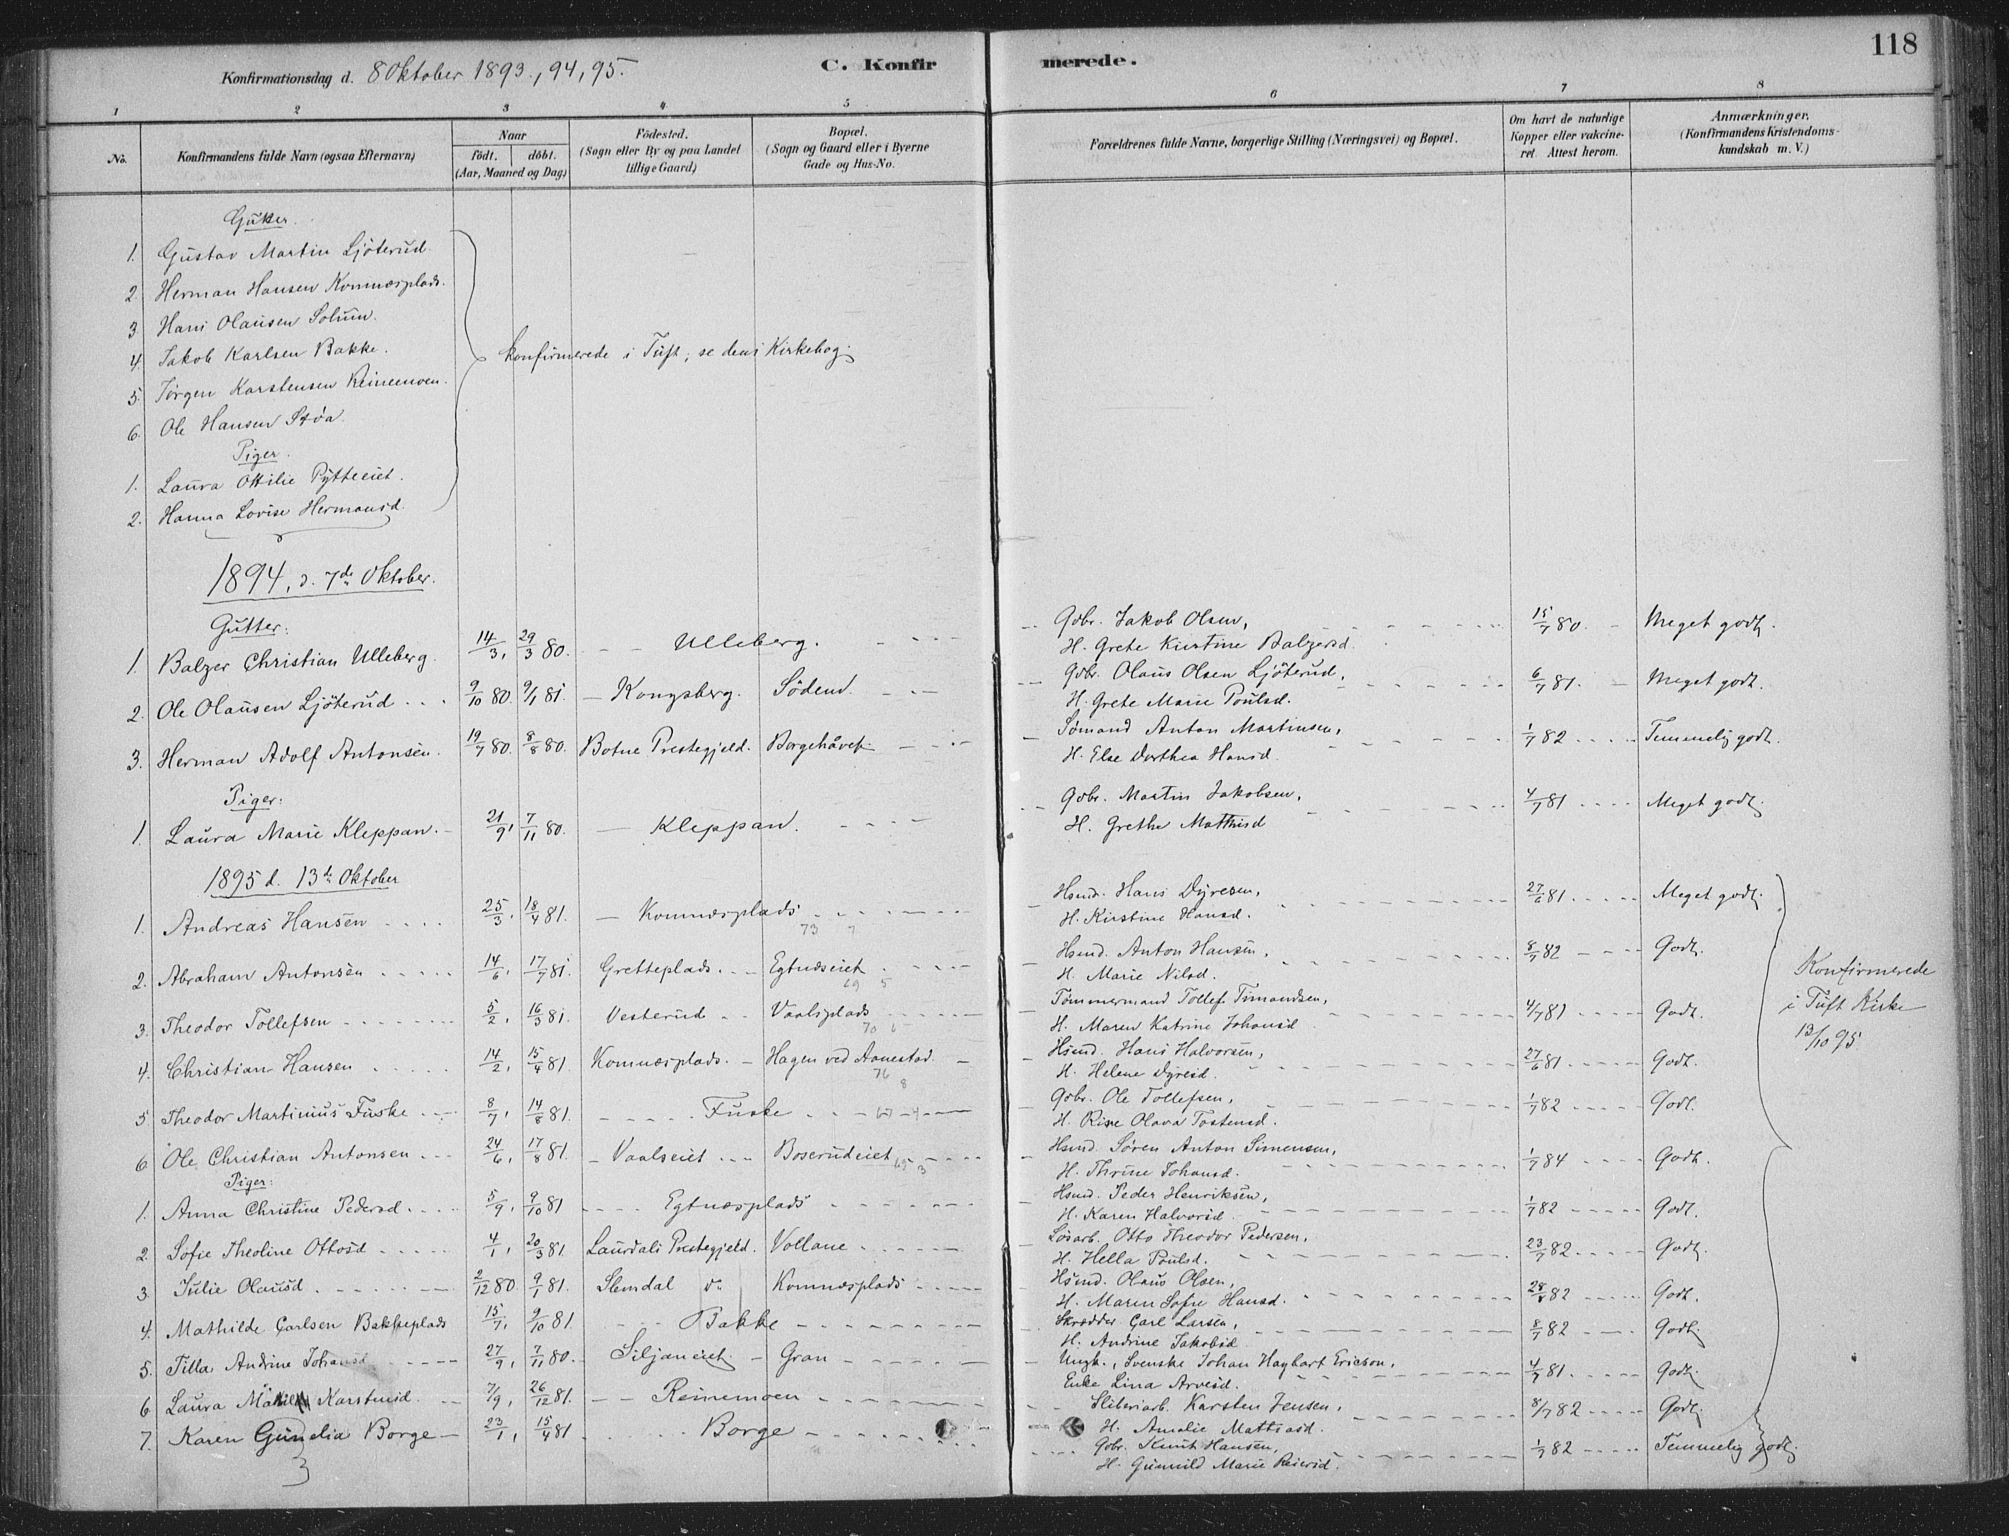 118
Konfirmationsdag d. 8 Oktober 1893, 94, 95.
C. Konfirmerede.
1 2 3 4 5 6 7 8
No.
Konfirmandens fulde Navn (ogsaa Efternavn)
Naar
født. døbt.
(Aar, Maaned og Dag)
Födested.
(Sogn eller By og paa Landet
tillige Gaard)
Bopæl.
(Sogn og Gaard eller i Byerne
Gade og Hus-No.
Forældrenes fulde Navne, borgerlige Stilling (Næringsvei) og Bopæl.
Om havt de naturlige
Kopper eller vakcine-
ret. Attest herom.
Anmærkninger.
(Konfirmandens Kristendoms-
kundskab m. V.)
Gutter.
1. Gustav Martin Ljöterud.
2. Herman Hansen Komnæsplads.
3. Hans Olausen Solum.
4. Jakob Karlsen Bakke.
5. Jørgen Karstensen Reinemoen.
6. Ole Hansen Stóa
konfirmerede i Tuft; se dens Kirkebog.
Piger.
1. Laura Ottilie Pytteeiet.
2. Hanna Lovise Hermansd.
1894, d. 7de Oktober.
Gutter:
1. Balzer Christian Ulleberg. 14/3, 29/3 80. Ulleberg. Gbr. Jakob Olsen, 15/7 80. Meget godt.
H. Grete Kirstine Balzersd.
2. Ole Olausen Ljöterud 9/10 80. 9/1 81. Kongsberg. Södend. Gbr. Olaus Olsen Ljöterud, 6/7 81. Meget godt.
H. Grete Marie Poulsd.
3. Herman Adolf Antonsen. 19/7 80. 8/8 80. Botne Prestegjeld. Borgehåvet Sømand Anton Martinsen, 1/7 82 Temmelig godt.
H. Else Dorthea Hansd.
Piger:
1. Laura Marie Kleppan. 21/9, 7/11 80. Kleppan. Gbr. Martin Jakobsen, 4/7 81 Meget godt.
H. Grethe Mathisd
1895 d. 13de Oktober
1. Andreas Hansen 25/3, 18/4 81. Komnæsplads Hsmd. Hans Dyresen, 27/6 81 Meget godt.
73 7
H. Kirstine Hansd.
2. Abraham Antonsen 14/6, 17/7 81. Gretteplads. Egtnæseiet Hsmd. Anton Hansen, 8/7 82 Godt.
69 5
H. Marie Nilsd.
3. Theodor Tollefsen 5/2, 16/3 81. Vesterud Vaalsplads Tömmermand Tollef Timandsen, 4/7 81 Godt.
70 6
H. Maren Katrine Johansd
4. Christian Hansen 14/2, 15/4 81. Komnæsplads. Hagen ved Aanestad. Hsmd. Hans Halvorsen, 27/6 81 Godt.
76 8
H. Helene Dyresd.
5 Theodor Martinius Fuske 8/7, 14/8 81. Fuske Gbr. Ole Tollefsen, 1/7 82 Godt.
H. Olava Tostensd.
6 Ole Christian Antonsen 24/6, 17/8 81. Vaalseiet Boserudeiet 65 3 Hsmd. Søren Anton Simensen, 1/7 84 Godt.
H. Thrine Johansd.
Konfirmerede
i Tuft Kirke
13/10 95
Piger:
1. Anna Christine Pedersd. 5/9, 9/10 81 Egtnæsplads Hsmd. Peder Henriksen, 1/7 82 Godt.
H. Karen Halvorsd.
2. Sofie Theoline Ottosd 4/1, 20/3 81. Laurdals Prestegjeld. Vollane Løsarb. Otto Theodor Pedersen, 23/7 82 Godt.
H. Hella Poulsd.
3. Julie Olausd 2/12 80 9/1 81. Slemdal Komnæsplads Hsmd. Olaus Olsen, 28/ 82 Godt.
H. Maren Sofie Hansd.
4. Mathilde Carlsen Bakkeplads 15/7, 9/10 81. Bakke Skrædder Carl Larsen, 8/7 82 Godt.
H. Andrine Jakobsd
5. Tilla Andrine Johansd 27/9, 7/11 80. Siljaneiet Gran Ungk., Svenske Johan Haybart Ericson, 4/7 81 Godt.
Enke Lina Arvesd.
6 Laura Karstensd. 7/9, 26/12 81. Reinemoen Sliberiarb. Karsten Jensen, 8/7 82 Godt.
H. Amalie Mattisd.
7. Karen Gunelia Borge 23/1, 15/4 81 Borge Gbr. Knut Hansen, 1/7 82 Temmelig godt.
H. Gunnild Marie Reiersd.